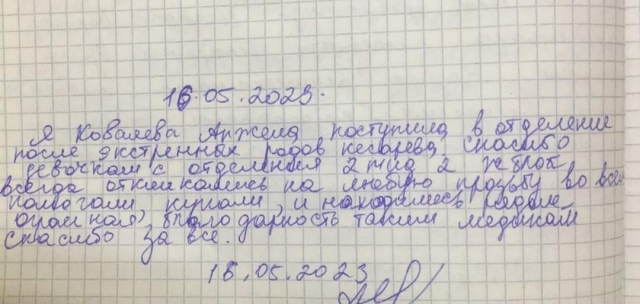 16.05.2023.
Я Ковалева Анжела поступила в отделение
после экстренных родов кесарева, спасибо
девочкам с отделения 2
всегда откликались на любую прозьбу во всем
помогали, купали, и находились рядом
огромная, благодарность таким медикам
спасибо за все.
16.05.2023